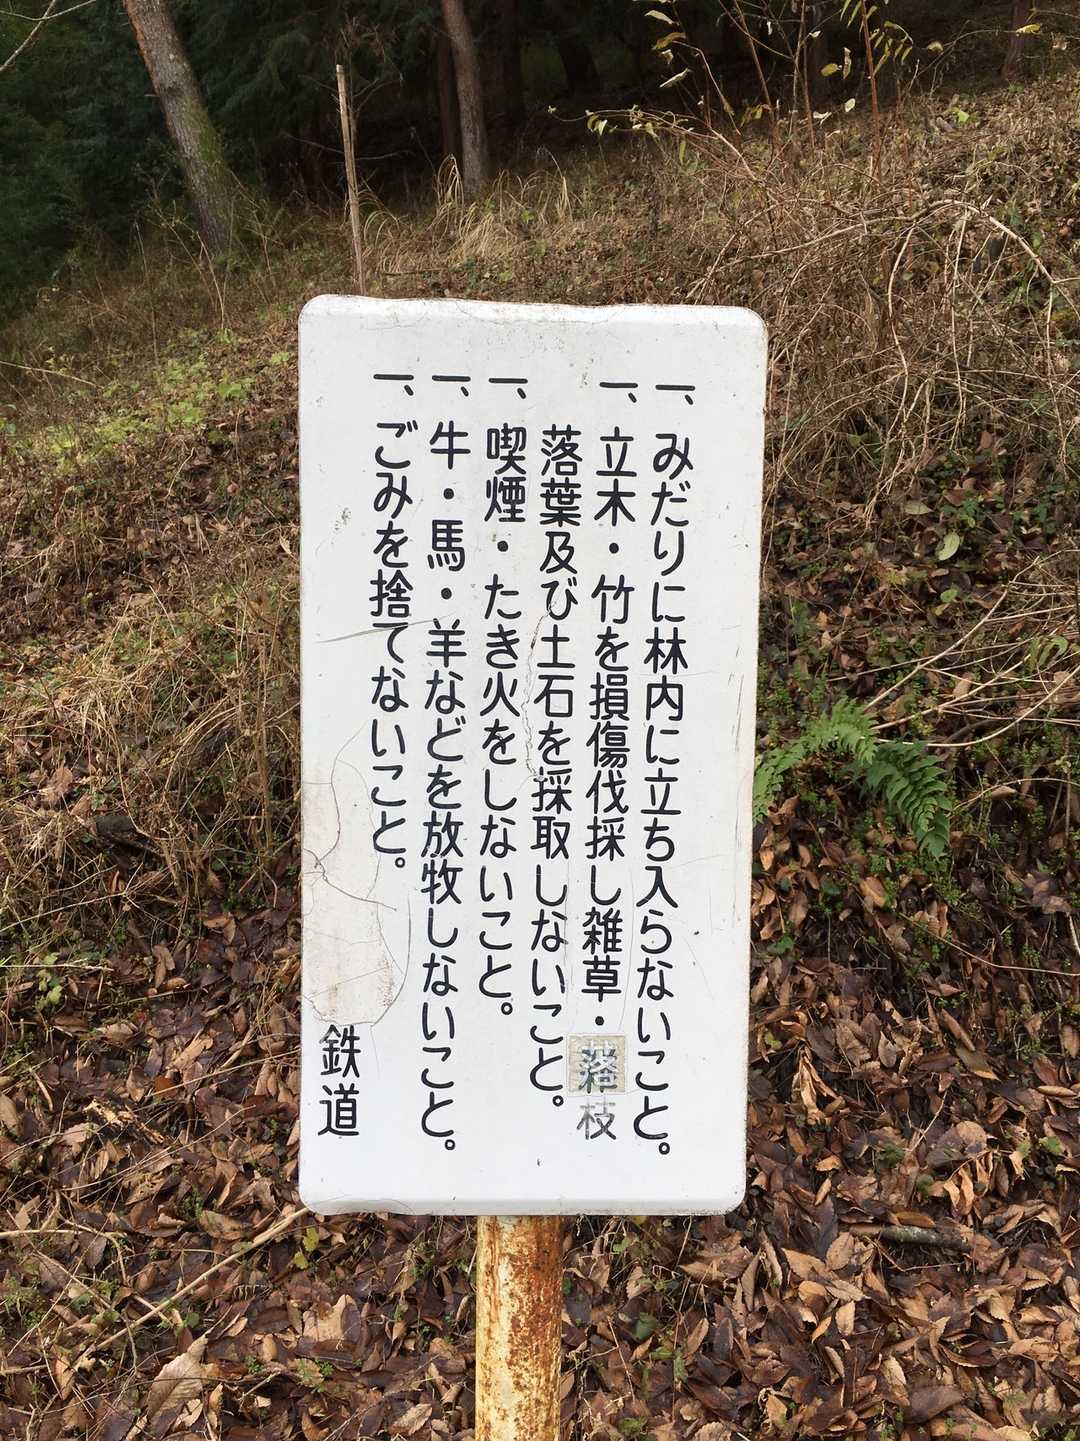 一、みだりに林内に立ち入らないこと。
一、立木・竹を損傷伐採し雑草・落枝
落葉及び土石を採取しないこと。
一、喫煙・たき火をしないこと。
一、牛・馬・羊などを放牧しないこと。
一、ごみを捨てないこと。
鉄道